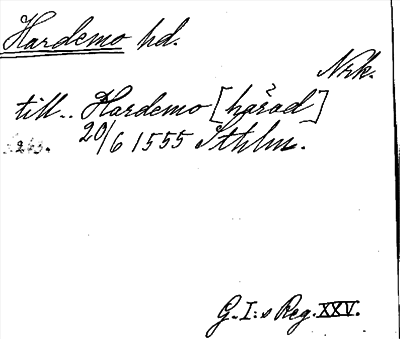 Hardemo hd.
Nrk.
till.. Hardemo [härad]
20/6 1555 Sthlm.
G. I:s Reg. XXV.